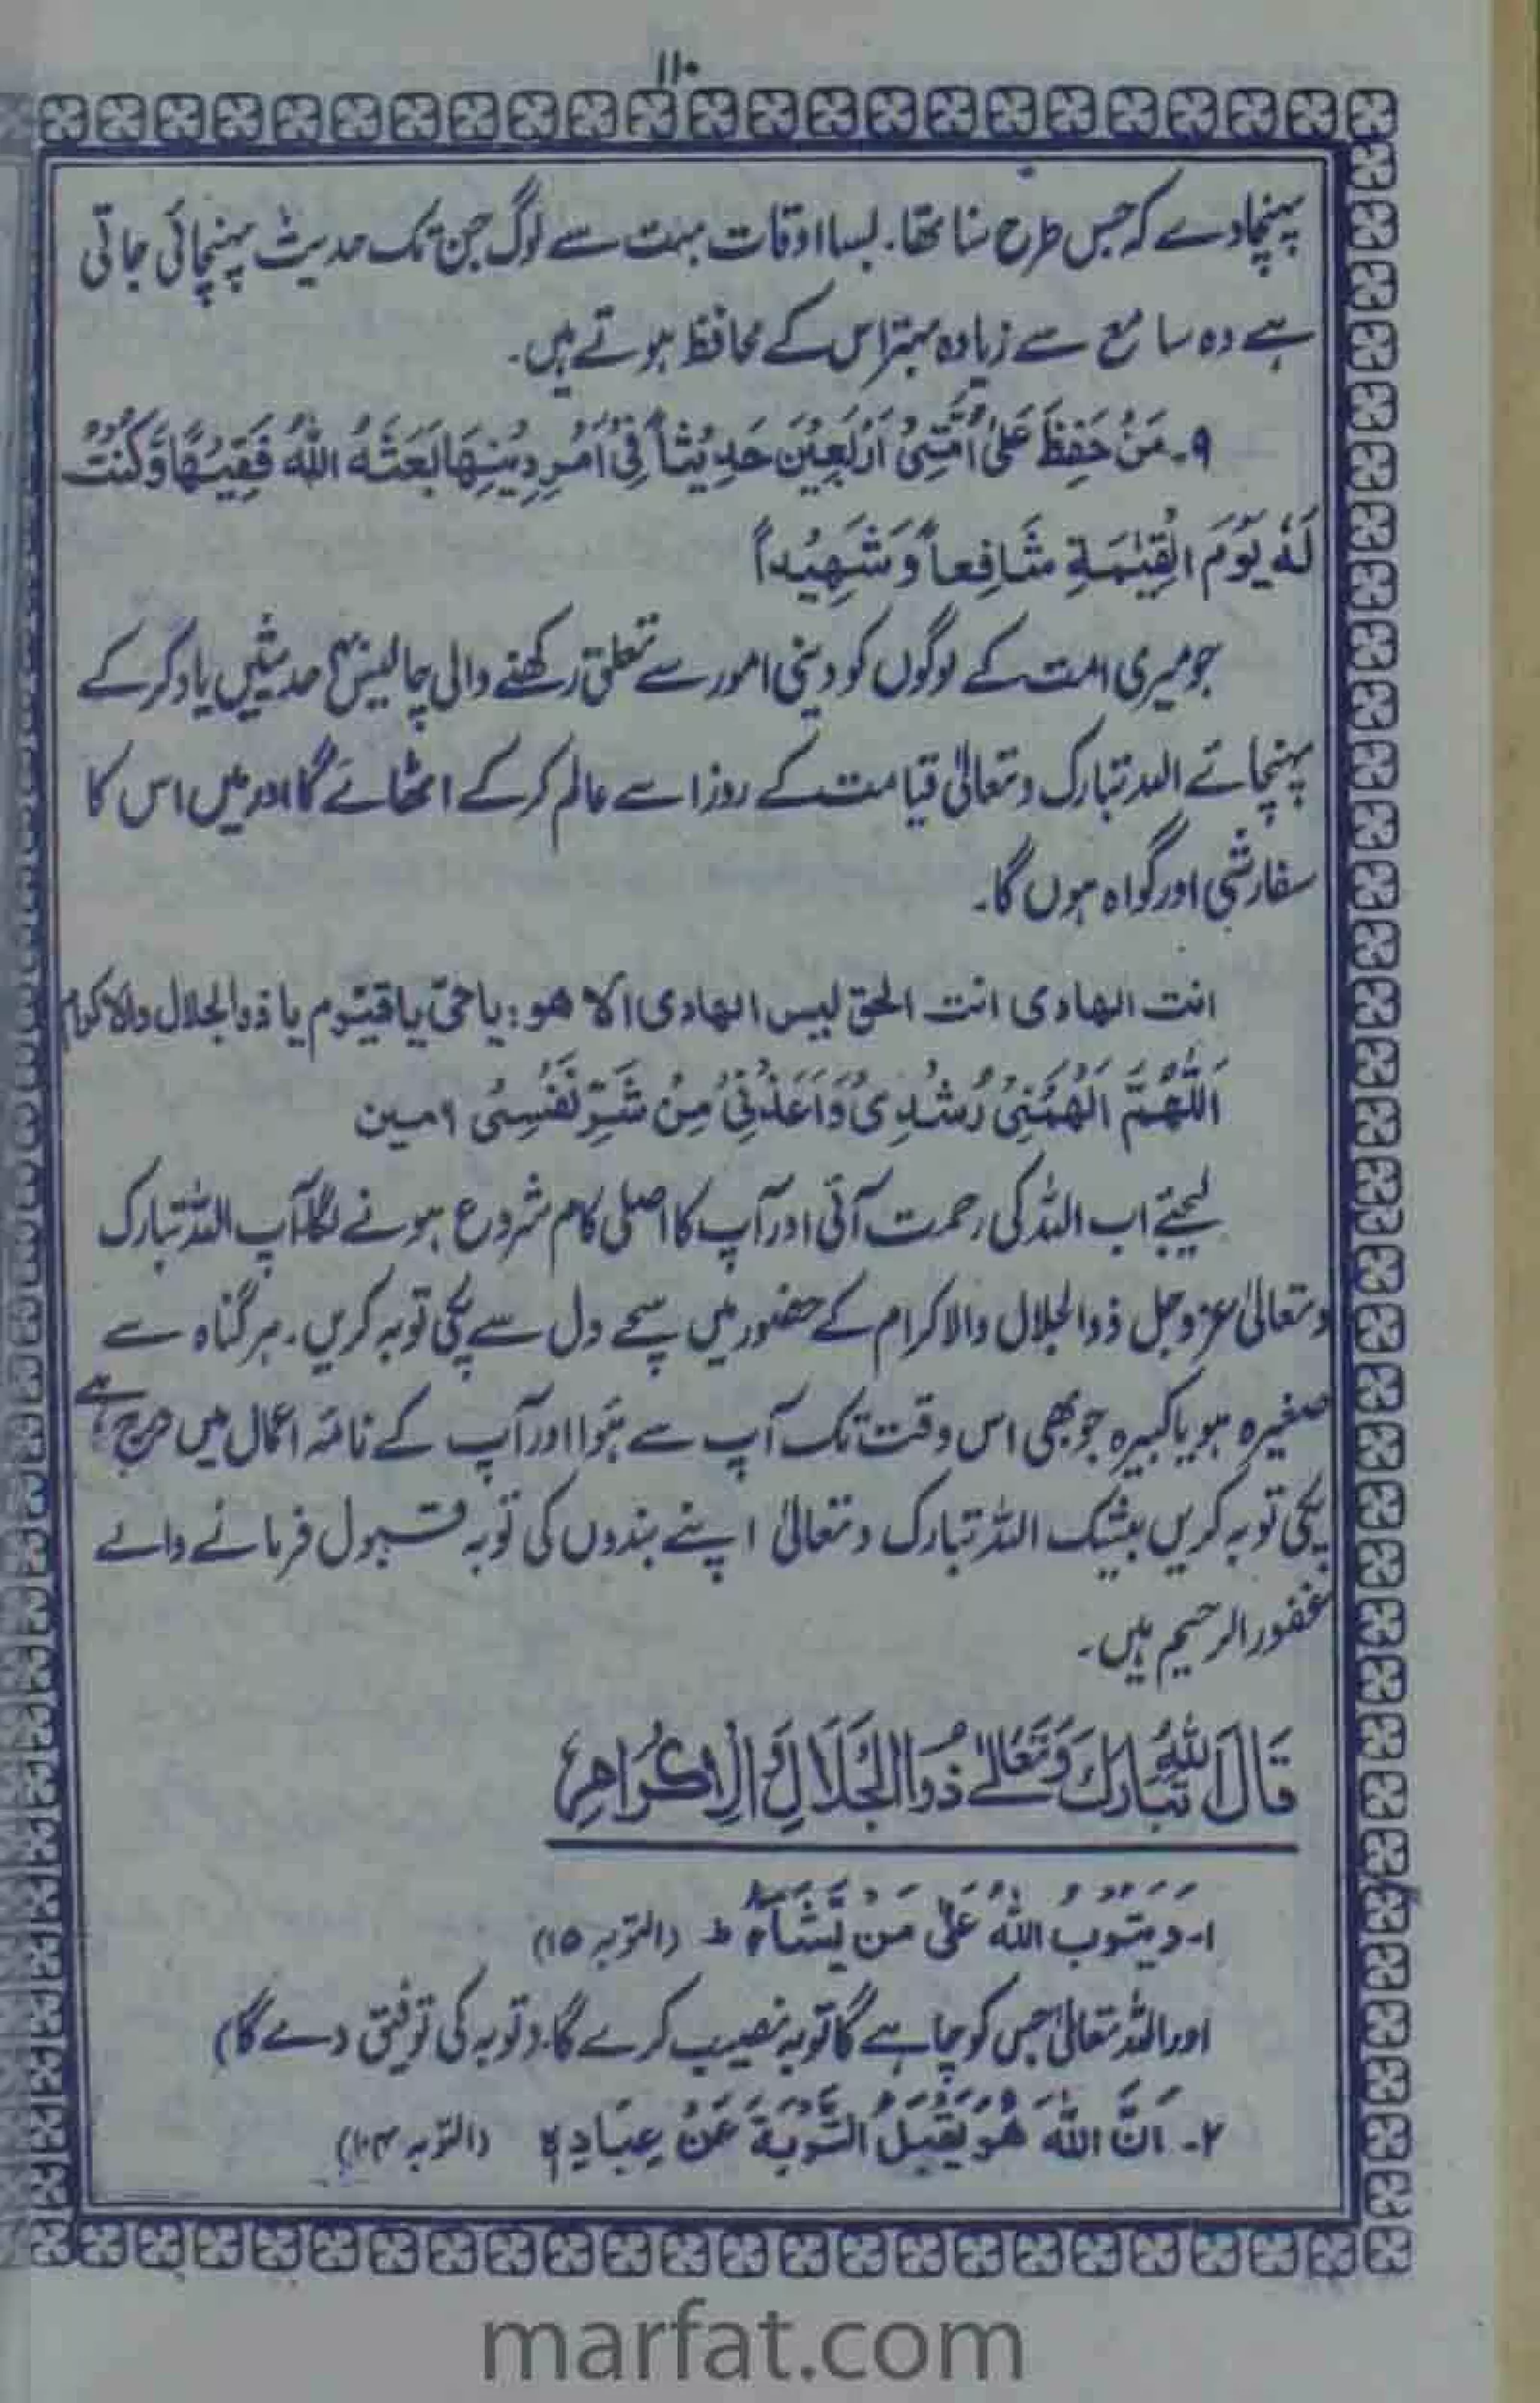 ۱۱۰
پہنچادے کہ جس طرح سنا تھا۔ بسا اوقات بہت سے لوگ جن تک حدیث پہنچائی جاتی
ہے وہ سامع سے زیادہ بہتر اس کے محافظ ہوتے ہیں۔
۹۔ مَنْ حَفِظَ عَلٰى اُمَّتِىْ اَرْبَعِيْنَ حَدِيْثاً فِىْ اَمْرِ دِيْنِهَا بَعَثَهُ اللّٰهُ فَقِيْهًا وَّكُنْتُ
لَهٗ يَوْمَ الْقِيٰمَةِ شَافِعاً وَّشَهِيْداً
جو میری امت کے لوگوں کو دینی امور سے تعلق رکھنے والی چالیس ۴۰ حدیثیں یاد کر کے
پہنچائے اللہ تبارک وتعالیٰ قیامت کے روز اسے عالم کر کے اٹھائے گا اور میں اس کا
سفارشی اور گواہ ہوں گا۔
انت الهادی انت الحق ليس الهادی الا هو: يا حیّ يا قيّوم يا ذوالجلال والاکرام
اَللّٰهُمَّ اَلْهِمْنِىْ رُشْدِىْ وَاَعِذْنِىْ مِنْ شَرِّ نَفْسِىْ آمين
لیجئے اب اللہ کی رحمت آئی اور آپ کا اصلی کام شروع ہونے لگا آپ اللہ تبارک
وتعالیٰ عزوجل ذوالجلال والاکرام کے حضور میں سچے دل سے پکی توبہ کریں۔ ہر گناہ سے
صغیرہ ہو یا کبیرہ جو بھی اس وقت تک آپ سے ہوا اور آپ کے نامۂ اعمال میں درج ہے
پکی توبہ کریں بیشک اللہ تبارک وتعالیٰ اپنے بندوں کی توبہ قبول فرمانے والے
غفور الرحیم ہیں۔
قَالَ اللّٰهُ تَبَارَكَ وَتَعَالٰے ذُوالْجَلَالِ وَالْاِكْرَامِ
۱۔ وَيَتُوْبُ اللّٰهُ عَلٰى مَنْ يَّشَآءُ ط (التوبہ ۱۵)
اور اللہ تعالیٰ جس کو چاہے گا توبہ نصیب کرے گا۔ (توبہ کی توفیق دے گا)
۲۔ اَنَّ اللّٰهَ هُوَ يَقْبَلُ التَّوْبَةَ عَنْ عِبَادِهٖ (التوبہ ۱۰۴)
marfat.com